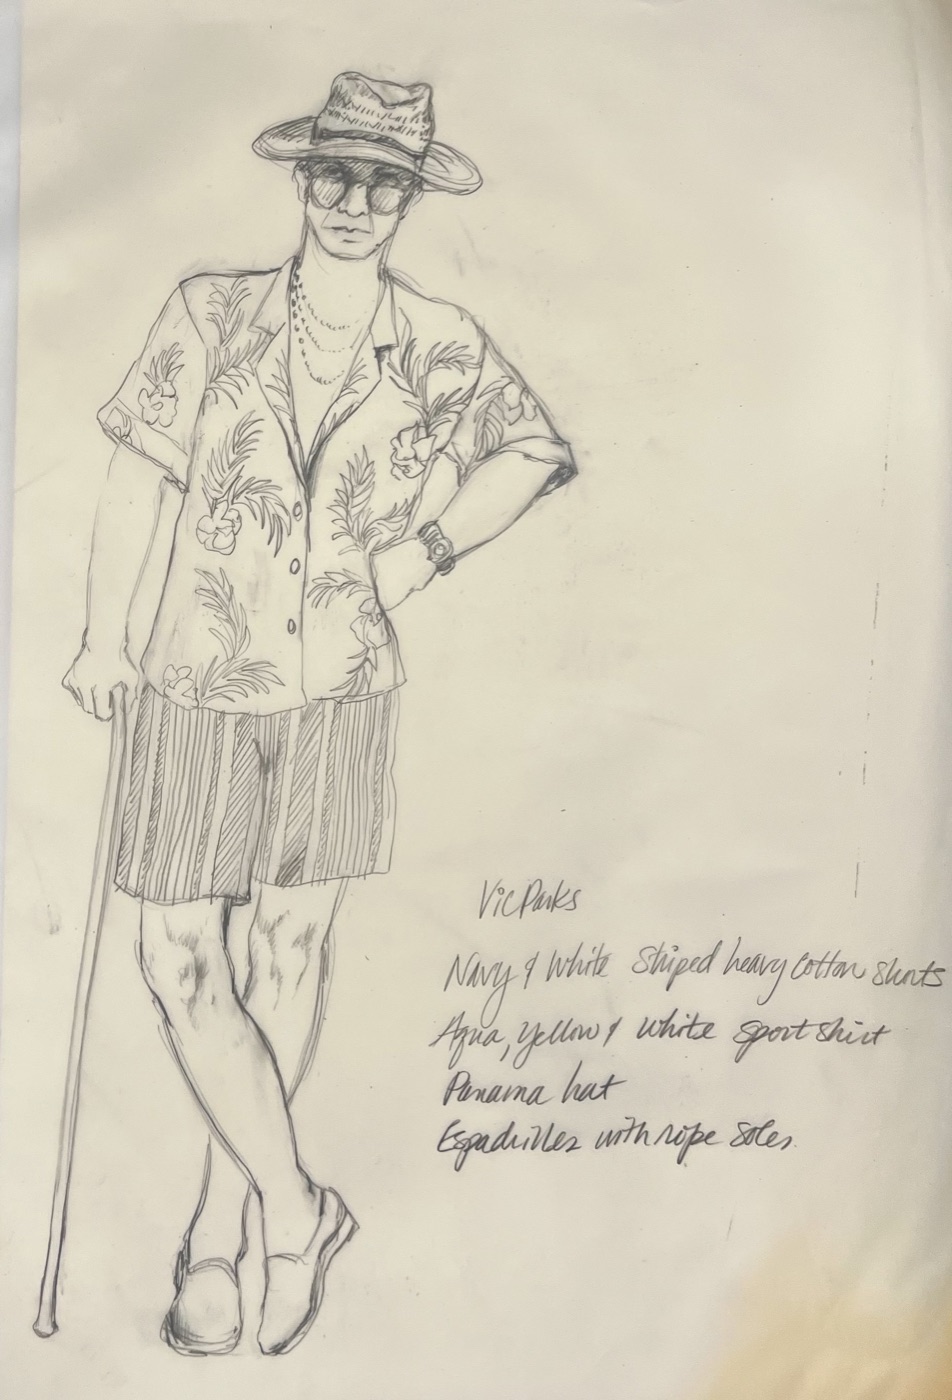 Vic Parks
Navy & White Striped heavy cotton shorts
Aqua, Yellow & White sport shirt
Panama hat
Espadrilles with rope soles.